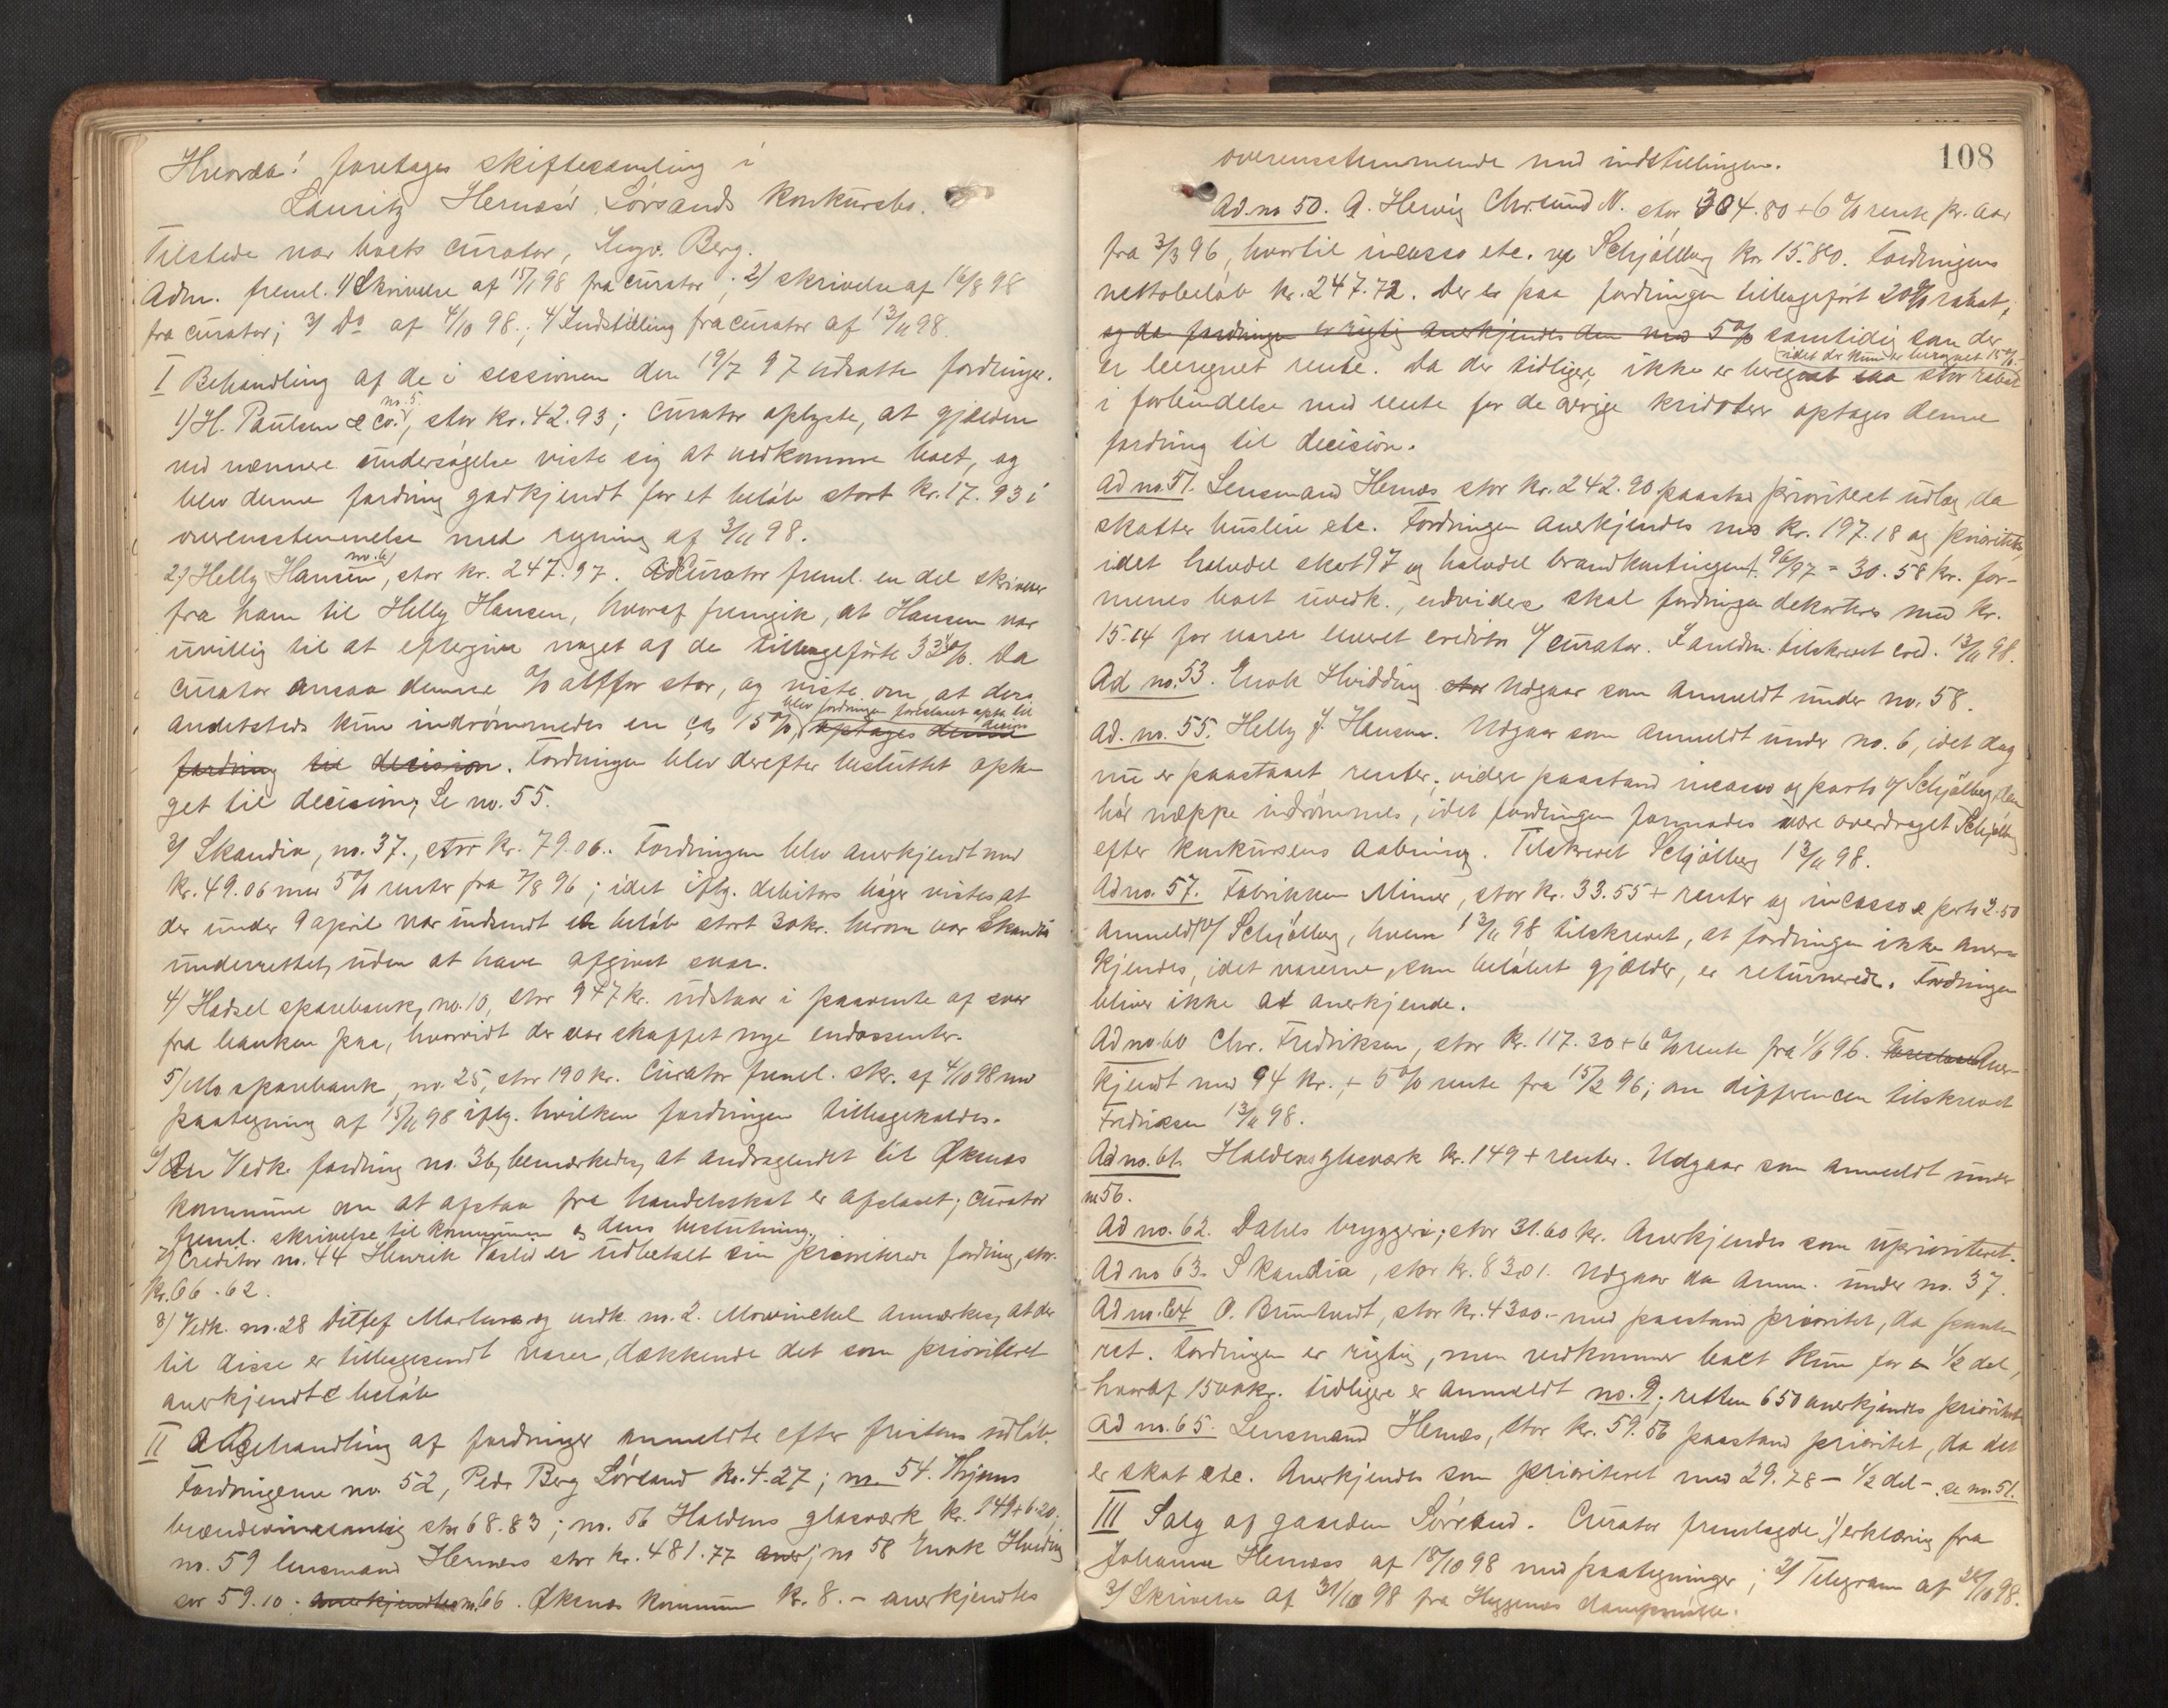 Hvorda! foretages skiftesamling i
Lauritz Hernæs', Sørsands konkursbo.
Tilstede var boets curator, Ingv. Berg.
Adm. freml. 1) Skrivelse af 15/1 98 fra curator; 2) skrivelse af 16/8 98
fra curator; 3) Do af 4/10 98.; 4) Indstilling fra curator af 13/11 98.
I Behandling af de i sessionen den 19/7 97 udsatte fordringer.
1) H. Paulsen & co. no. 5, stor kr. 42.93; curator oplyste, at gjælden
ved nærmere undersøgelse viste sig at vedkomme boet, og
blev denne fordring godkjendt for et beløb stort kr. 17.93 i
overensstemmelse med regning af 3/11 98.
2) Helly Hansen no. 6, stor kr. 247.97. Curator freml. en del skrivelser
fra ham til Helly Hansen, hvoraf fremgik, at Hansen var
uvillig til at eftergive noget af de tillageførte 33 1/3 %. Da
curator ansaa denne % altfor stor, og viste om, at der
andetsteds kun indrømmedes en ca 15 %, blev fordringen foreslaaet opta. til decision optages denne
fordring til decision. Fordringen blev derefter besluttet opta-
get til decision; Se no. 55.
3) Skandia, no. 37., stor kr. 79.06. Fordringen blev anerkjendt med
kr. 49.06 med 5 % renter fra 7/8 96; idet iflg. debitors bøger vistes, at
der under 9 april var indsendt et beløb stort 30 kr. herom var Skandia
underrettet, uden at have afgivet svar.
4) Hadsel sparebank, no. 10, stor 947 kr. udstaar i paavente af svar
fra banken paa, hvorvidt der var skaffet nye endossenter.
5) Mo sparebank, no. 25, stor 190 kr. Curator freml. skr. af 4/10 98 med
paategning af 15/11 98 iflg. hvilken fordringen tilbagekaldes.
6) Vedk. fordring no. 36, bemærkedes, at andragendet til Øksnes
kommune om at afstaa fra handelsskat er afslaaet; curator
freml. skrivelse til kommunen og dens beslutning.
7) Creditor no. 44 Henrik er udbetalt sin prioriterede fordring, stor
kr. 66.62.
8) Vedk. no. 28 Ditlef Martens og vedk. no. 2. Mowinckel anmærkes, at der
til disse er tilbagesendt varer, dækkende det som prioriteret
anerkjendte beløb
II Behandling af fordringer anmeldte efter fristens udløb.
Fordringerne no. 52, Peder Berg Sørsand kr. 4.27; no. 54.
brændevinssamlag stor 68.83; no. 56 Haldens glasværk kr. 149 + 6.20;
no. 59 lensmand Hernæs stor kr. 481.77 aner; no 58 Enok Hvidding
stor 59.10. anerkjendtes no. 66. Øksnes kommune kr. 8.- anerkjendtes
108
overensstemmende med indstillingen.
Ad. no 50. A. Hervig Chr.sund N. stor 304.80 + 6 % rente pr. aar
fra 3/3 96, hvortil incasso etc. ved Schjølberg kr 15.80. Fordringens
nettobeløb kr. 247.72. Der er paa fordringen tillageført 20 % rabat,
og da fordringen er rigtig anerkjendes den med 5 % samtidig som der
er beregnet rente. Da der tidligere ikke er beregnet saa stor rabat idet der kun er beregnet 15 %
i forbindelse med rente for de øvrige kriditorer optages denne
fordring til decision.
Ad no. 51. Lensmand Hernæs stor kr. 242.90 paastaa prioriteret udlæg, da
skatter husleie etc. Fordringen anerkjendes med kr. 197.18 og prioritet,
idet halvdel skat 97 og halvdel brandkontingent 96/97 = 30.58 kr. for-
menes boet uvedk., endvidere skal fordringen dekorteres med kr.
15.14 for varer leveret creditor af curator. tilskrevet cred. 13/11 98.
Ad no. 53. Enok Hvidding stor Udgaar som anmeldt under no. 58.
Ad. no. 55. Helly J. Hansen. Udgaar som anmeldt under no. 6, idet dog
nu er paastaaet renter; videre paastand incasso og porto af Schjølberg, den
bør næppe indrømmes, idet fordringen formodes være overdraget Schjølberg
efter konkursens aabning. Tilskrevet Schjølberg 13/11 98.
Ad no. 57. Fabrikken Mimer, stor kr. 33.55 + renter og incasso & porto 2.50
anmeldt v/ Schjølberg, hvem 13/11 98 tilskrevet, at fordringen ikke aner-
kjendes, idet varerne, som beløbet gjælder, er returnerede. Fordringen
bliver ikke at anerkjende.
Ad no. 60 Chr. Fredriksen, stor kr. 117.30 + 6 % rente fra 1/6 96. Aner-
kjendt med 94 kr. + 5 % rente fra 15/2 96; om differencen tilskrevet
Fredriksen 13/11 98.
Ad no. 61. Haldens glasværk kr. 149 + renter. Udgaar som anmeldt under
no 56.
Ad no. 62. Dahls bryggeri; stor 31.60 kr. Anerkjendes som uprioriteret.
Ad no 63. Skandia, stor kr. 83.01. Udgaar da anm. under no. 37.
Ad no. 64. O. stor kr. 4300.- med paastand prioritet, da pante-
ret. Fordringen er rigtig, men vedkommer boet kun for en 1/2 del,
hvoraf 1500 kr. tidligere er anmeldt no. 9; resten 650 anerkjendes prioritet
Ad no. 65. Lensmand Hernæs, stor kr. 59.56 paastand prioritet, da det
er skat etc. Anerkjendes som prioriteret med 29.78 - 1/2 del -. se no. 51.
III Salg af gaarden Sørsand. Curator fremlagde 1) erklæring fra
Johanna Hernæss af 18/10 98 med paategninger; 2) Telegram af 28/10 98.
3) Skrivelse af 31/10 98 fra Hyggenes dampmølle.